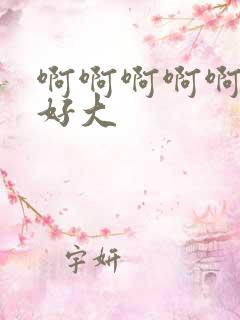 啊啊啊啊啊
好大
宇妍